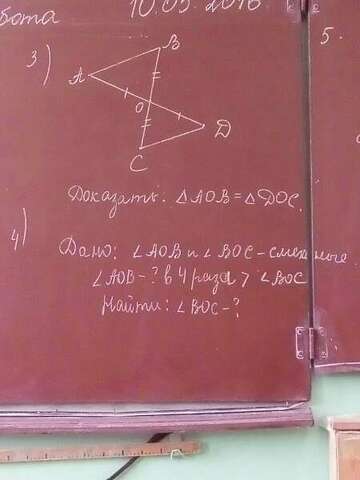 бота 10.05.2016
3)
B
A
O
D
C
Доказать: △AOB = △DOC.
4)
Дано: ∠AOB и ∠BOC - смежные
∠AOB - ? в 4 раза > ∠BOC
Найти: ∠BOC - ?
5.